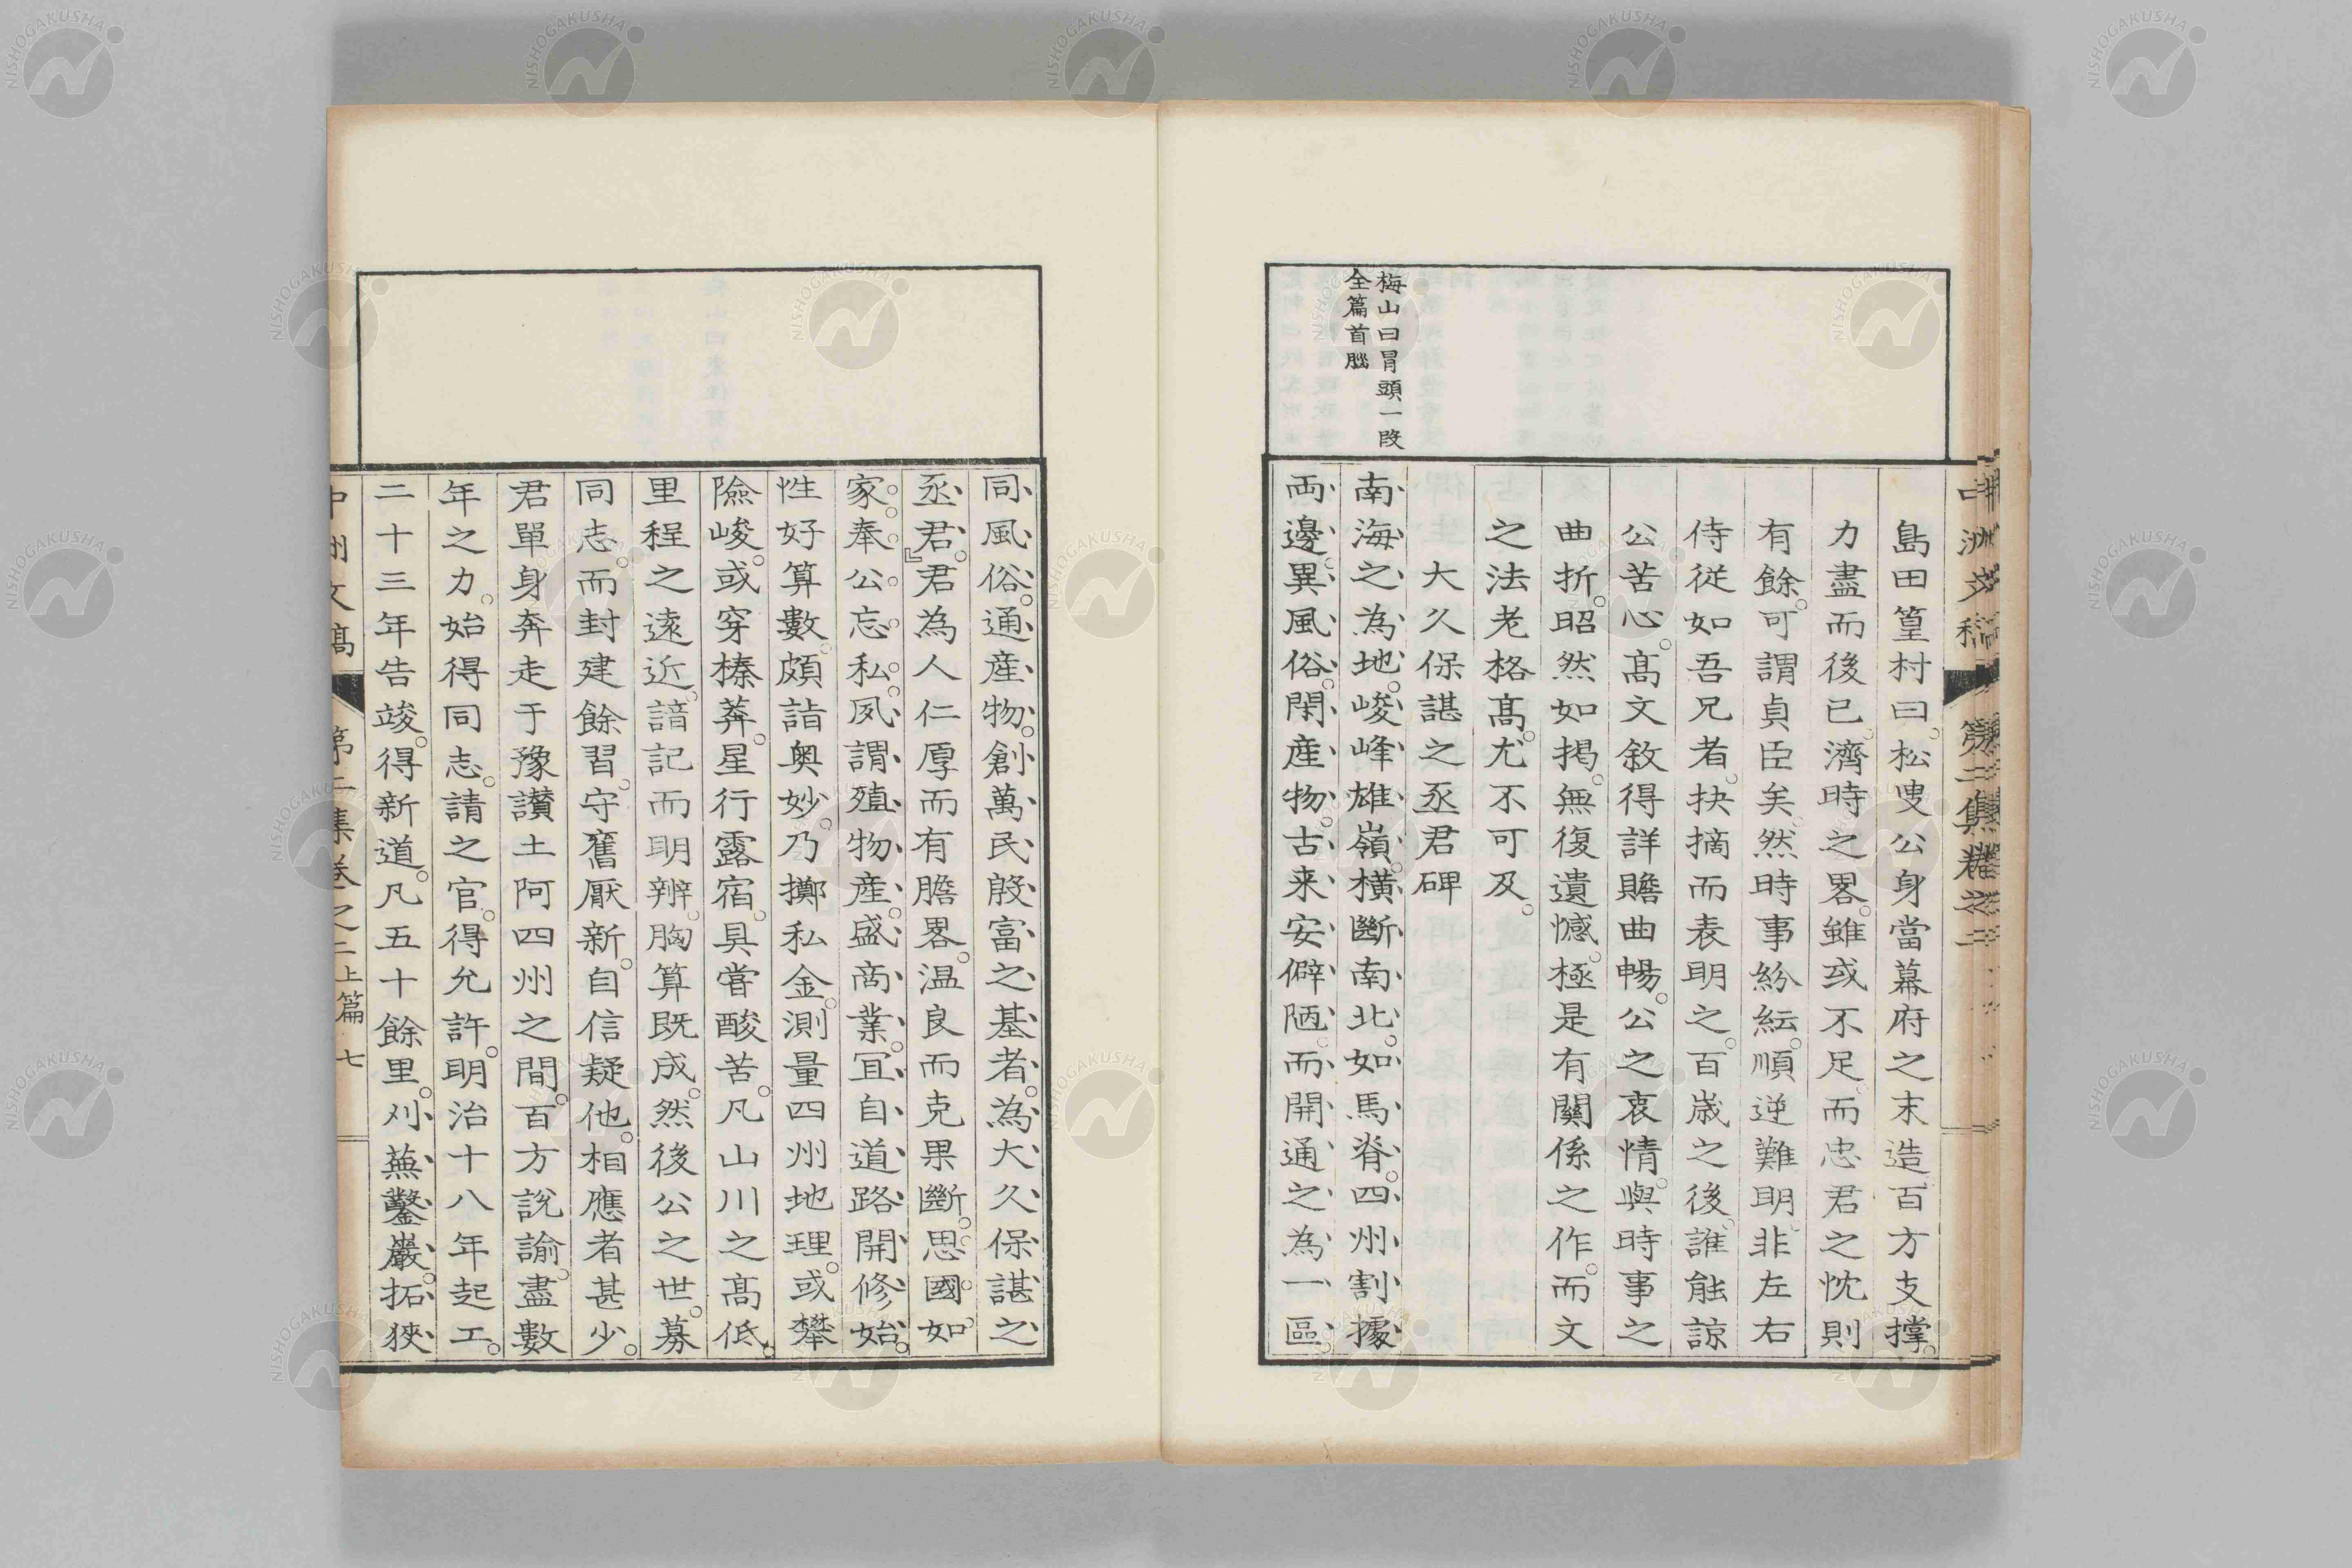 梅山曰冒頭一段
全篇首腦
島田篁村曰。松叟公身當幕府之末造百方支撑。
力盡而後已。濟時之畧。雖或不足。而忠君之忱則
有餘。可謂貞臣矣。然時事紛紜。順逆難明。非左右
侍從如吾兄者。抉摘而表明之。百歲之後。誰能諒
公苦心。髙文敘得詳贍曲暢。公之哀情。與時事之
曲折。昭然如揭。無復遺憾。極是有關係之作。而文
之法老格髙。尤不可及。
大久保諶之丞君碑
南海之為地。峻峰雄嶺。橫斷南北。如馬脊。四州割據
両邊。異風俗。閑産物。古来安僻陋。而開通之為一區
同風俗。通産物。創萬民殷富之基者。為大久保諶之
丞君。』君為人仁厚而有膽畧。温良而克果斷。思國如
家。奉公忘私。夙謂殖物産。盛商業。冝自道路開修始。
性好算數。頗詣奥妙。乃擲私金。測量四州地理。或攀
險峻。或穿榛莽。星行露宿。具嘗酸苦。凡山川之髙低。
里程之遠近。諳記而明辨。胸算既成。然後公之世。募
同志。而封建餘習。守舊厭新。自信疑他。相應者甚少。
君單身奔走于豫讃土阿四州之間。百方說諭。盡數
年之力。始得同志。請之官。得允許。明治十八年起工。
二十三年告竣。得新道。凡五十餘里。刈蕪鑿巖。拓狹
中洲文稿 第二集卷之二上篇 七